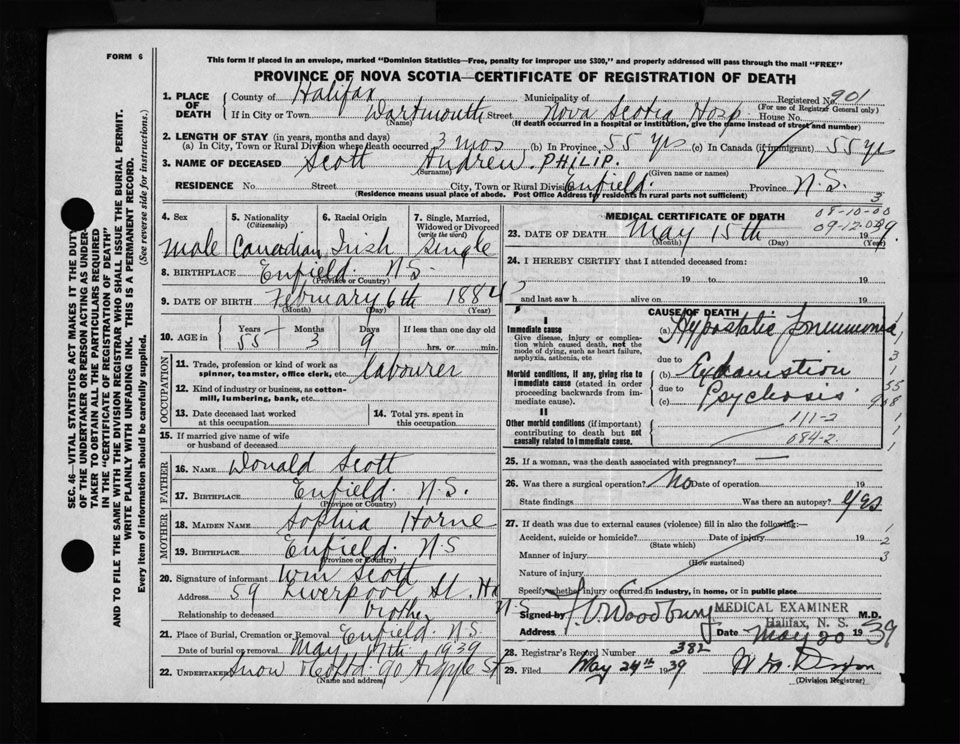 FORM 6
This form if placed in an envelope, marked "Dominion Statistics—Free, penalty for improper use $300," and properly addressed will pass through the mail "FREE"
PROVINCE OF NOVA SCOTIA—CERTIFICATE OF REGISTRATION OF DEATH
SEC. 46—VITAL STATISTICS ACT MAKES IT THE DUTY
OF THE UNDERTAKER OR PERSON ACTING AS UNDER-
TAKER TO OBTAIN ALL THE PARTICULARS REQUIRED
IN THE "CERTIFICATE OF REGISTRATION OF DEATH"
AND TO FILE THE SAME WITH THE DIVISION REGISTRAR WHO SHALL ISSUE THE BURIAL PERMIT.
WRITE PLAINLY WITH UNFADING INK. THIS IS A PERMANENT RECORD.
Every item of information should be carefully supplied. (See reverse side for instructions.)
1. PLACE OF DEATH County of Halifax Municipality of Registered No. 901
(For use of Registrar General only)
If in City or Town Dartmouth Street Nova Scotia Hosp House No.
(Name) (If death occurred in a hospital or institution, give the name instead of street and number)
2. LENGTH OF STAY (in years, months and days)
(a) In City, Town or Rural Division where death occurred 3 mos (b) In Province 55 yrs (c) In Canada (if immigrant) 55 yrs
3. NAME OF DECEASED Scott Andrew. PHILIP.
(Surname) (Given name or names)
RESIDENCE No. Street City, Town or Rural Division Enfield. Province N.S.
(Residence means usual place of abode. Post Office Address for residents in rural parts not sufficient)
3
4. Sex 5. Nationality (Citizenship) 6. Racial Origin 7. Single, Married, Widowed or Divorced (write the word)
Male Canadian Irish Single
8. BIRTHPLACE Enfield. N.S.
(Province or Country)
9. DATE OF BIRTH February 6th 1884
(Month) (Day) (Year)
10. AGE in Years Months Days If less than one day old
55 3 9 hrs. or min.
OCCUPATION
11. Trade, profession or kind of work as spinner, teamster, office clerk, etc. labourer
12. Kind of industry or business, as cotton-mill, lumbering, bank, etc.
13. Date deceased last worked at this occupation 14. Total yrs. spent in this occupation
15. If married give name of wife or husband of deceased
FATHER
16. NAME Donald Scott
17. BIRTHPLACE Enfield. N.S.
(Province or Country)
MOTHER
18. MAIDEN NAME Sophia Horne
19. BIRTHPLACE Enfield. N S
(Province or Country)
20. Signature of informant Wm Scott
Address 59 Liverpool St. Hx N.S.
Relationship to deceased brother
21. Place of Burial, Cremation or Removal Enfield. N.S.
Date of burial or removal May 17th 1939
22. UNDERTAKER Snow 90 Argyle St
(Name and address)
MEDICAL CERTIFICATE OF DEATH
08-10-00
09-12-00
23. DATE OF DEATH May 15th 1939.
(Month) (Day) (Year)
24. I HEREBY CERTIFY that I attended deceased from:
19 to 19
and last saw h alive on 19
CAUSE OF DEATH
I
Immediate cause (a) Hypostatic Pneumonia
Give disease, injury or complication which caused death, not the mode of dying, such as heart failure, asphyxia, asthenia, etc
due to
Morbid conditions, if any, giving rise to immediate cause (stated in order proceeding backwards from immediate cause).
(b) Exhaustion
due to
(c) Psychosis
II
Other morbid conditions (if important) contributing to death but not causally related to immediate cause.
111-2
084-2
25. If a woman, was the death associated with pregnancy? —
26. Was there a surgical operation? No Date of operation 19
State findings Was there an autopsy? Yes
27. If death was due to external causes (violence) fill in also the following:—
Accident, suicide or homicide? Date of injury 19
(State which)
Manner of injury
(How sustained)
Nature of injury
Specify whether injury occurred in industry, in home, or in public place
Signed by Woodbury MEDICAL EXAMINER M.D.
Address Halifax, N. S.
Date May 20 1939
28. Registrar's Record Number 382
29. Filed May 24th 1939
(Division Registrar)